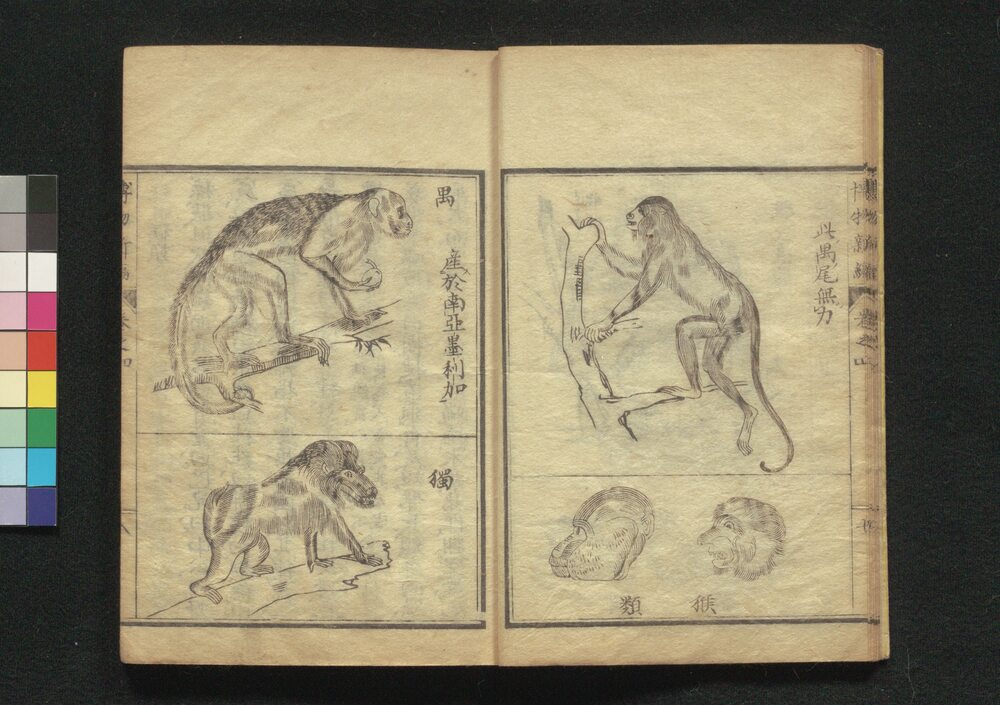 博物新編
此禺尾無力
猴類
禺
產於南亞墨利加
獨